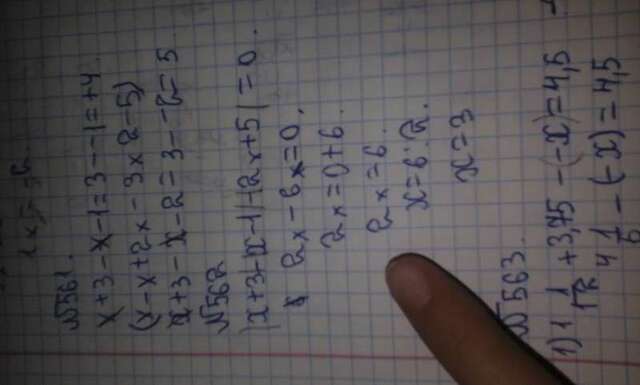 №561.
x+3-x-1=3--1=+4.
(x-x+2x-3x2-5)
x+3-x-2=3--2=5.
№562
|x+3+x-1|+2x+5|=0.
2x-6x=0,
2x=0+6.
2x=6.
x=6:2.
x=3
№563.
1) 1 1/12+3,75-(-x)=4,5
4 1/5-(-x)=4,5